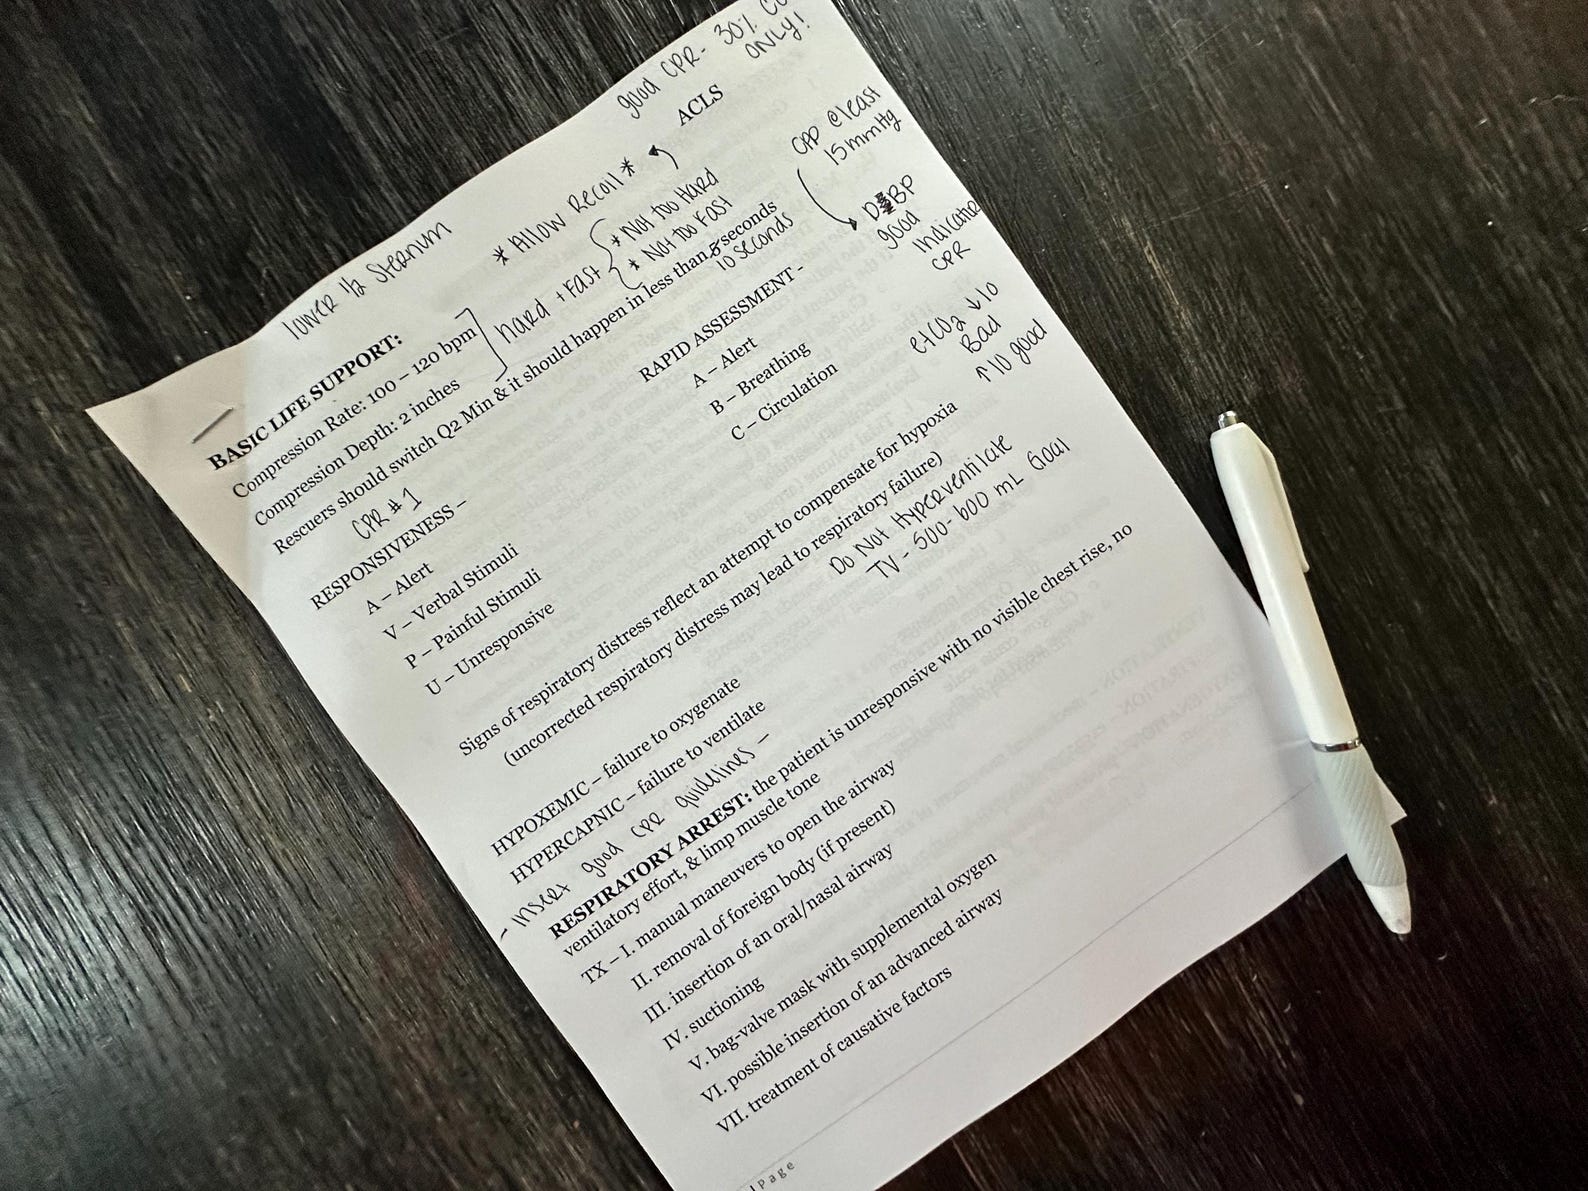 good CPR - 30% CO
ONLY!
ACLS
lower 1/2 sternum
* Allow Recoil *
* Not too Hard
* Not too Fast
hard + Fast
CPP @ least
15 mmHg
DBP
good
indicator
CPR
BASIC LIFE SUPPORT:
Compression Rate: 100 – 120 bpm
Compression Depth: 2 inches
Rescuers should switch Q2 Min & it should happen in less than 5 seconds
10 seconds
CPR #1
RESPONSIVENESS –
A – Alert
V – Verbal Stimuli
P – Painful Stimuli
U – Unresponsive
RAPID ASSESSMENT -
A – Alert
B – Breathing
C – Circulation
etCO2 ↓10
Bad
↑10 good
Signs of respiratory distress reflect an attempt to compensate for hypoxia
(uncorrected respiratory distress may lead to respiratory failure)
Do Not Hyperventilate
TV - 500-600 mL Goal
HYPOXEMIC – failure to oxygenate
HYPERCAPNIC – failure to ventilate
- Insert good CPR guidelines -
RESPIRATORY ARREST: the patient is unresponsive with no visible chest rise, no
ventilatory effort, & limp muscle tone
TX – I. manual maneuvers to open the airway
II. removal of foreign body (if present)
III. insertion of an oral/nasal airway
IV. suctioning
V. bag-valve mask with supplemental oxygen
VI. possible insertion of an advanced airway
VII. treatment of causative factors
| Page